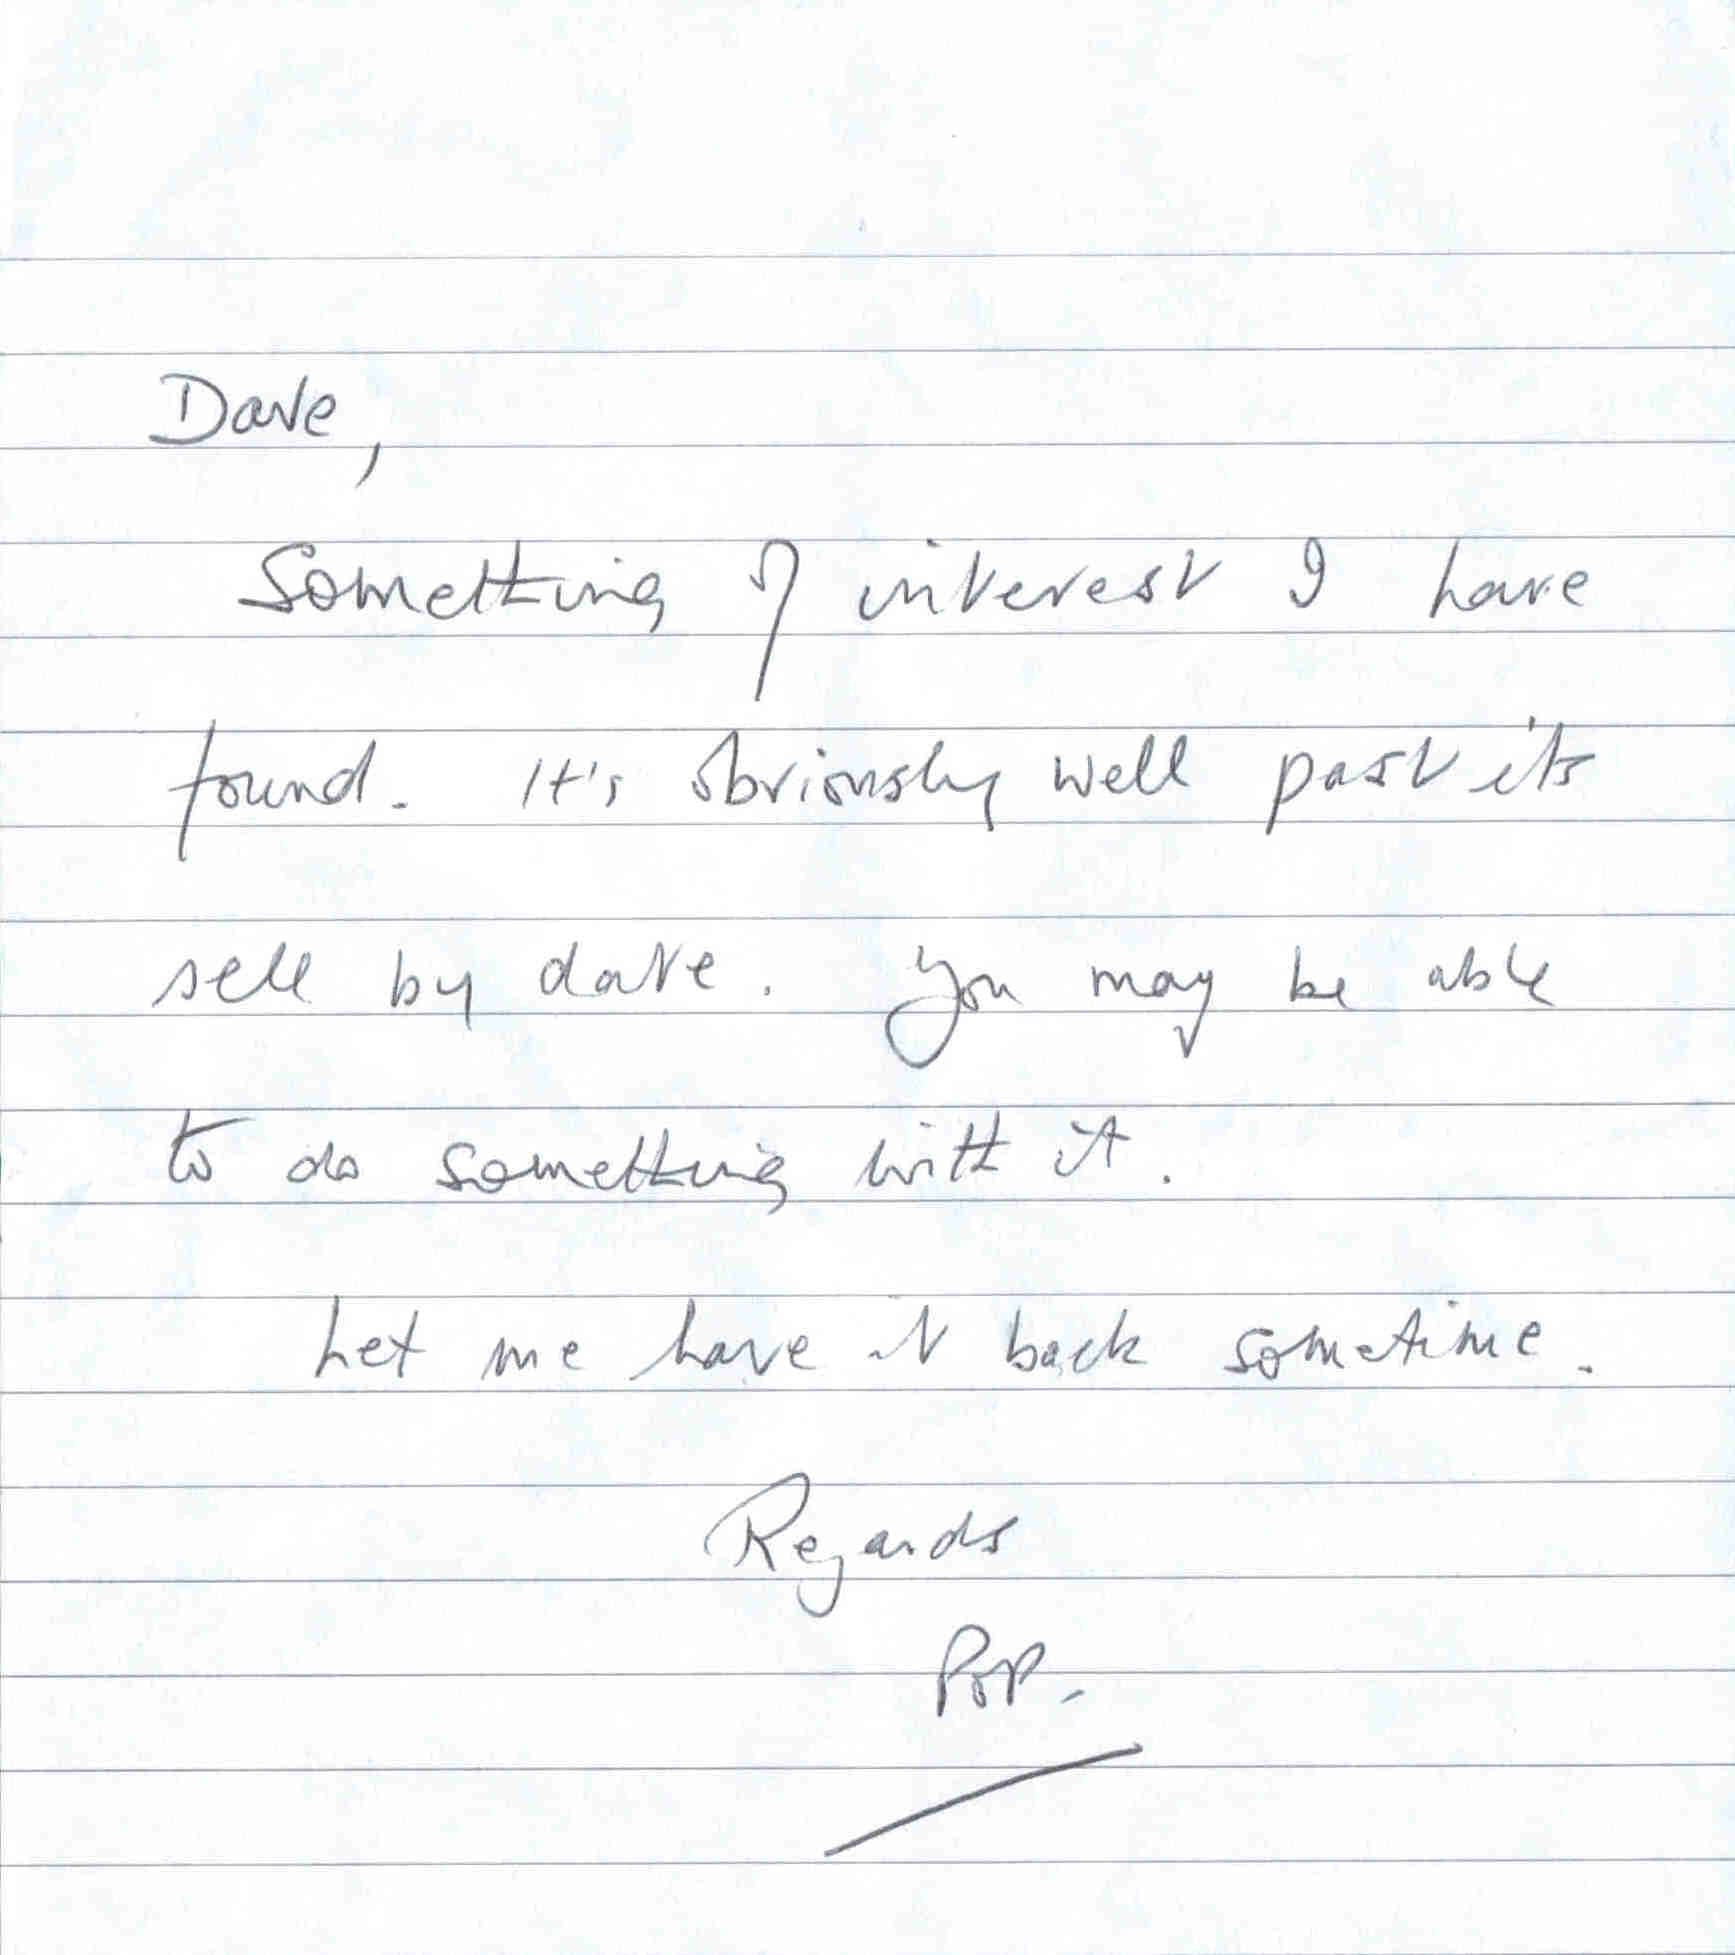 Dave,
Something of interest I have
found. It's obviously well past its
sell by date. You may be able
to do something with it.
Let me have it back sometime.
Regards
Pop.